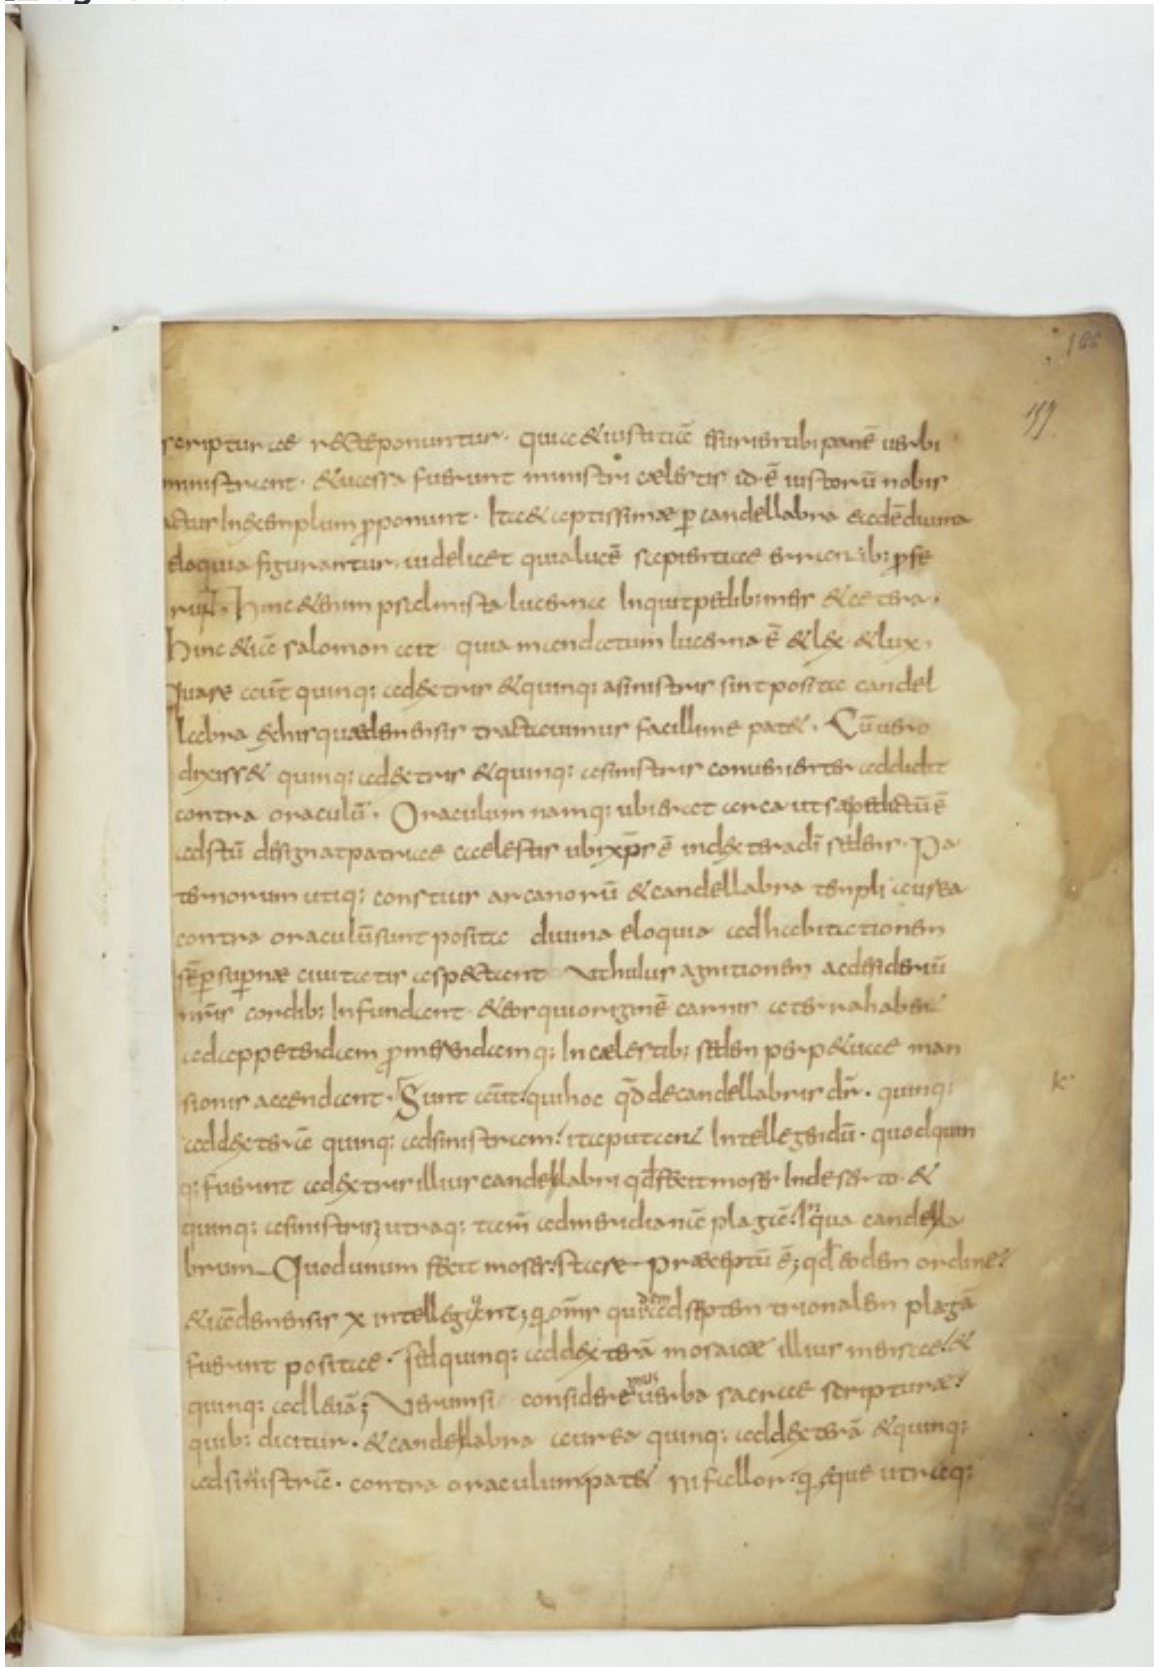 186
157
scripturae recte ponuntur. quia & iustitiā esurientibi panē uerbi
ministrant. & uassa fuerunt ministri caelestis id ē iustorū nobis
actus In exemplum p̱ponunt. Itaq& aptissimae ꝑ candellabra eadē diuina
eloquia figurantur. uidelicet quia lucē sapientiae errantib; p̱fe
runt. Hinc &enim psalmista lucerna Inquit pedib; meis & cetera.
hinc &iā salomon ait quia mandatum lucerna ē & lex & lux.
Quare autē quinq; ad dextris & quinq; a sinistris sint posita candel
labra ex his quae de mensis tractauimus facillime pat&. Cū uero
dixiss& quinq; ad dextris & quinq; a sinistris conuenienter addidit
contra oraculū. Oraculum namq; ubi erat arca ut saepe dictū ē
ad stū designat patriae caelestis ubi xp̄s ē in dextera dī sedens. Pa
ternorum utiq; conscius arcanorū & candellabra templi aurea
contra oraculū sunt posita diuina eloquia ad habitationem
sēp supnae ciuitatis aspectant Ut huius agnitionem ac desideriū
nrīs cordib; Infundant &eos qui originē carnis a terra habent
ad appetendam p̱merendamq; In caelestib; sedem perp&uae man
k
sionis accendant. Sunt autē qui hoc qđ de candellabris dr̄. quinq;
ad dexterā quinq; ad sinistram; ita putent Intellegendū. quod quin
q; fuerunt ad dextris illius candellabri qđ fecit moses In deserto. &
quinq; a sinistris; utraq; tam̄ ad meridianā plagā. In qua candella
brum Quod unum fecit moses; stare praeceptū ē; qđ eodem ordine
& iā de mensis x intellegunt; q̄ om̄s quidem ad septemtrionalem plagā
fuerunt positae. sed quinq; ad dexterā mosaicae illius mensae. &
quinq; ad leuā; Uerum si consideremus uerba sacrae scripturae
quib; dicitur. & candellabra aurea quinq; ad dexterā & quinq;
ad sinistrā. contra oraculum; pat& ni fallor. q̄ eque utraq;